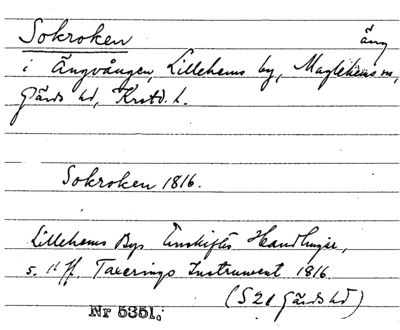 Sokroken äng
i Ängvången, Lillehems by, Maglehems sn,
Gärds hd, Krstd. l.
Sokroken 1816.
Lillehems Bys Enskiftes Handlingar,
s. 11 ff. Taxerings Instrument 1816.
(S 21 Gärds hd)
Nr 5351.